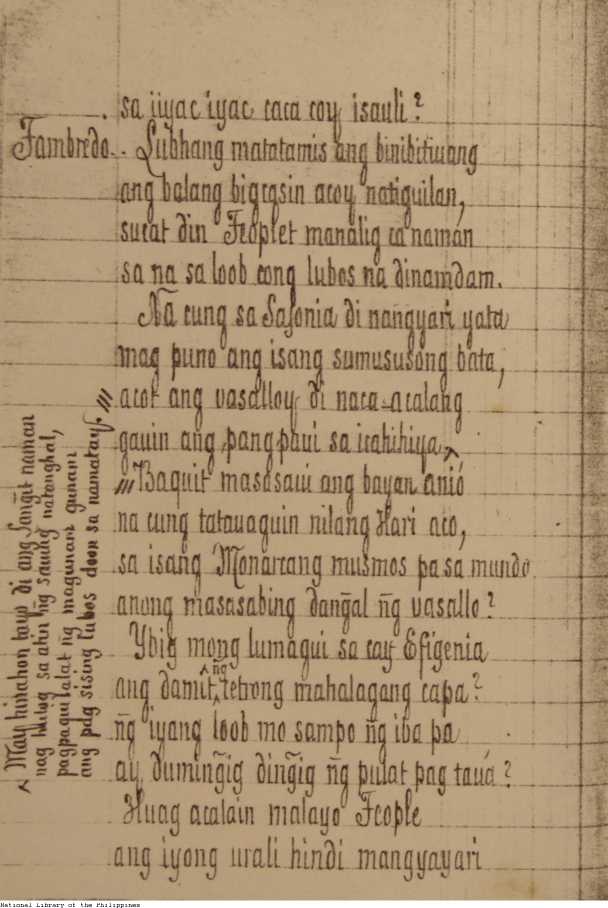 sa iiyac iyac caca coy isauli?
Fambredo. Lubhang matatamis ang binibitiuang
ang balang bigcasin acoy natiguilan,
sucat din Feoplet manalig ca naman
sa na sa loob cong lubos na dinamdam.
Na cung sa Sajonia di nangyari yata
mag puno ang isang sumususong bata,
acot ang vasalloy di naca-acalang
gauin ang pang paui sa icahihiya
Baquit masasaui ang bayan anió
na cung tatauaguin nilang Hari aco,
sa isang Monarcang musmos pa sa mundo
anong masasabing dang̃al ñg vasallo?
Ybig mong lumagui sa cay Efigenia
ang damit ñg cetrong mahalagang capa?
ñg iyang loob mo sampo ñg iba pa
ay duming̃ig ding̃ig ñg pulat pag tauá?
Huag acalain malayo Feople
ang iyong urali hindi mangyayari
May hinahon tayo di ang Lang̃it naman
nag hulog sa atin ñg sauing natanghal,
pagpaquilalat ñg magunam gunam
ang pag sising lubos doon sa namatay.
National Library of the Philippines